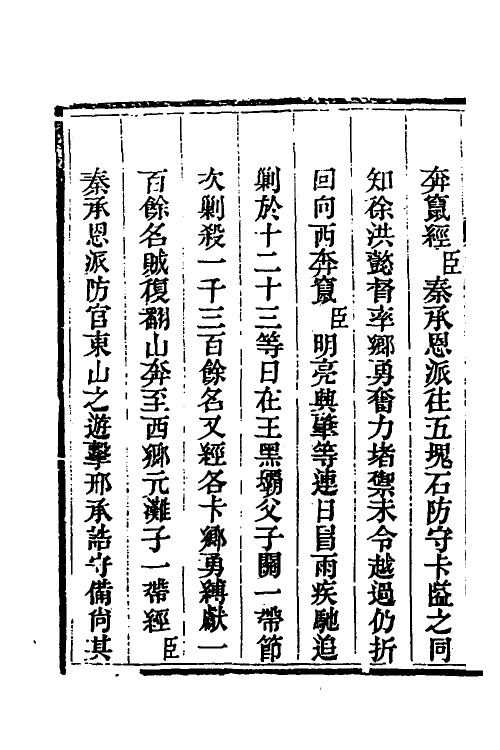 奔竄經臣秦承恩派往五塊石防守卡隘之同
知徐洪懿督率鄉勇奮力堵禦未令越過仍折
回向西奔竄臣明亮興肇等連日冒雨疾馳追
剿於十二十三等日在王黑壩父子關一帶節
次剿殺一千三百餘名又經各卡鄉勇縛獻一
百餘名賊復翻山奔至西鄉元灘子一帶經臣
秦承恩派防官東山之遊擊邢承誥守備尙其